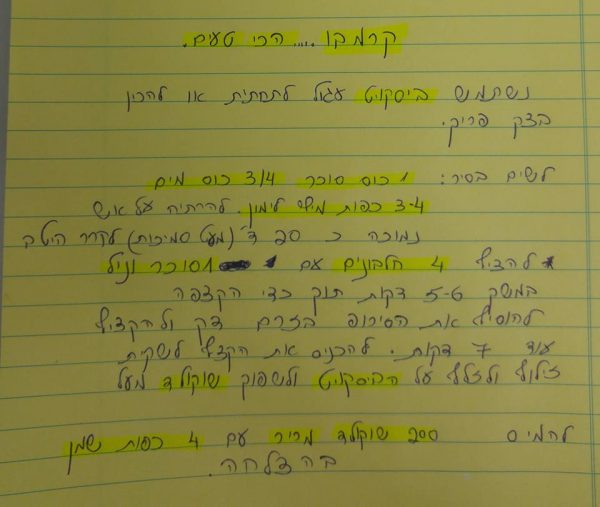 קרמבו ..... הכי טעים.
נשתמש ביסקויט עגול לתחתית או להכין
בצק פריך.
לשים בסיר: 1 כוס סוכר 3/4 כוס מים
3-4 כפות מיץ לימון. להרתיח על אש
נמוכה כ 20 ד' (מעט סמיכות) לקרר היטב
להקציף 4 חלבונים עם 1 סוכר וניל
במשך 5-6 דקות תוך כדי הקצפה
להוסיף את הסירופ בזרם דק ולהקציף
עוד 7 דקות. להכניס את הקצף לשקית
זילוף ולזלף על הביסקויט ולשפוך שוקולד מעל
להמיס 200 שוקולד מריר עם 4 כפות שמן
בהצלחה.